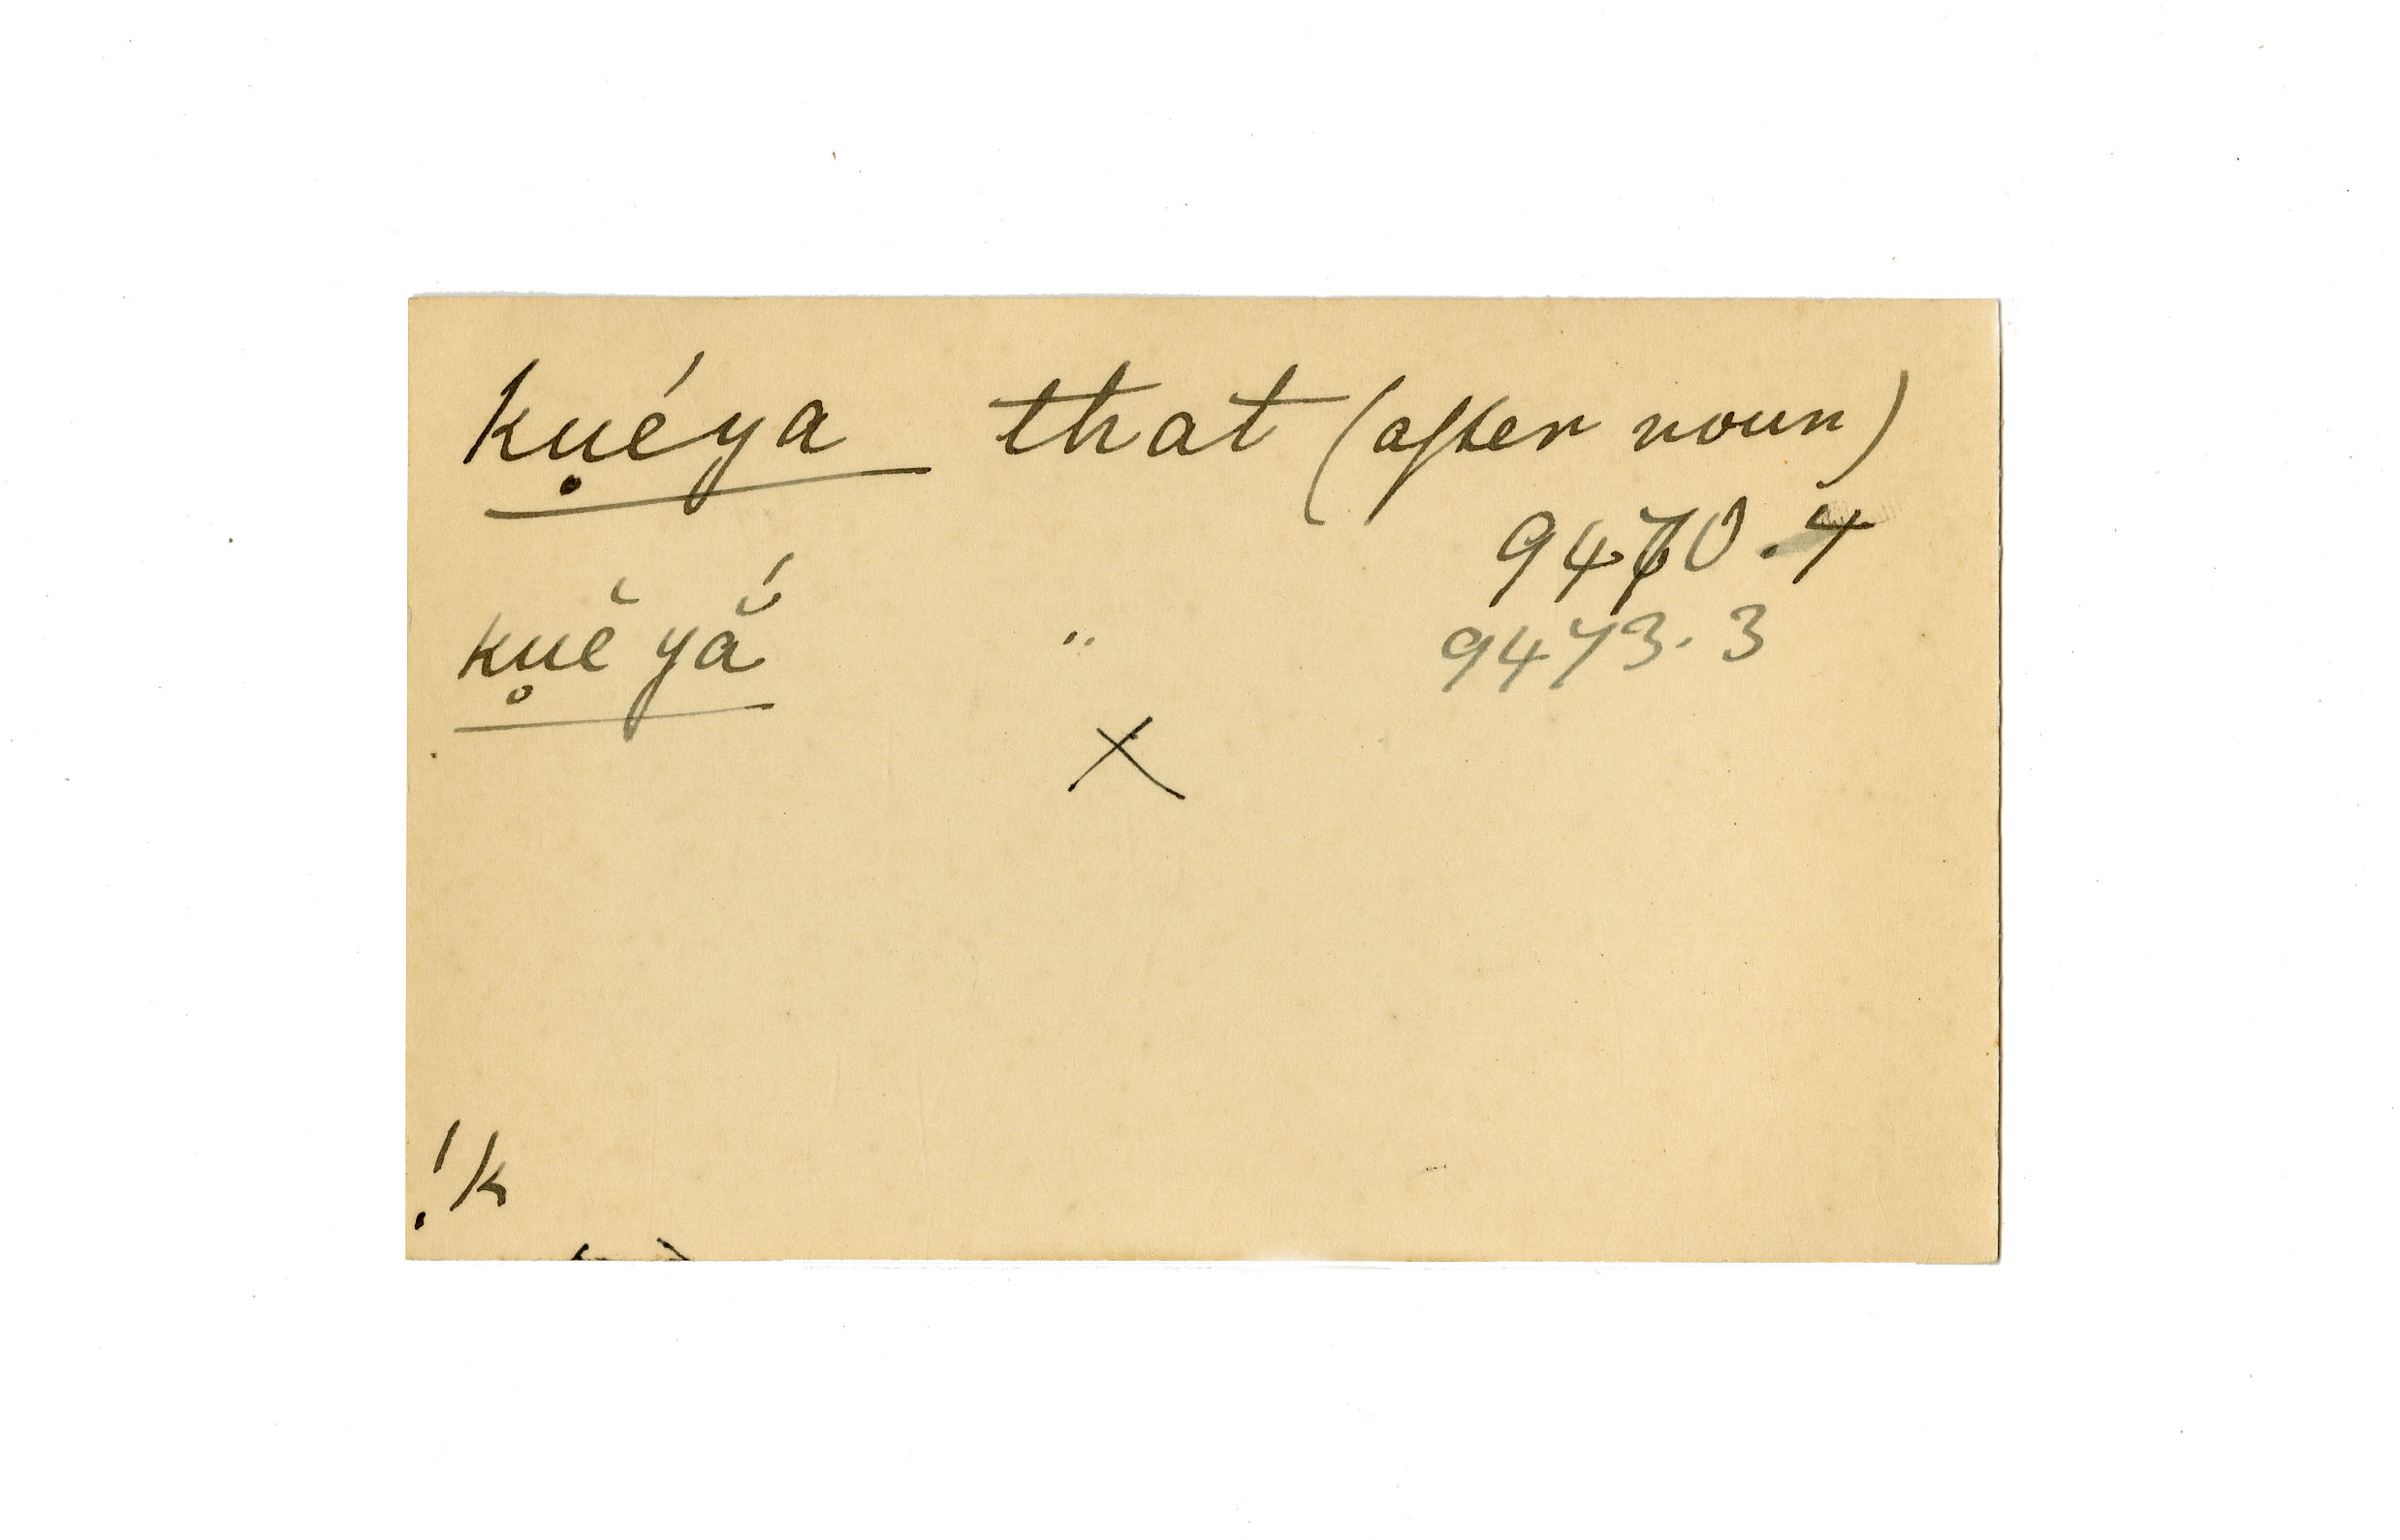 kụéya that (after noun)
9470.4
kụĕyắ " 9473.3
X
!k